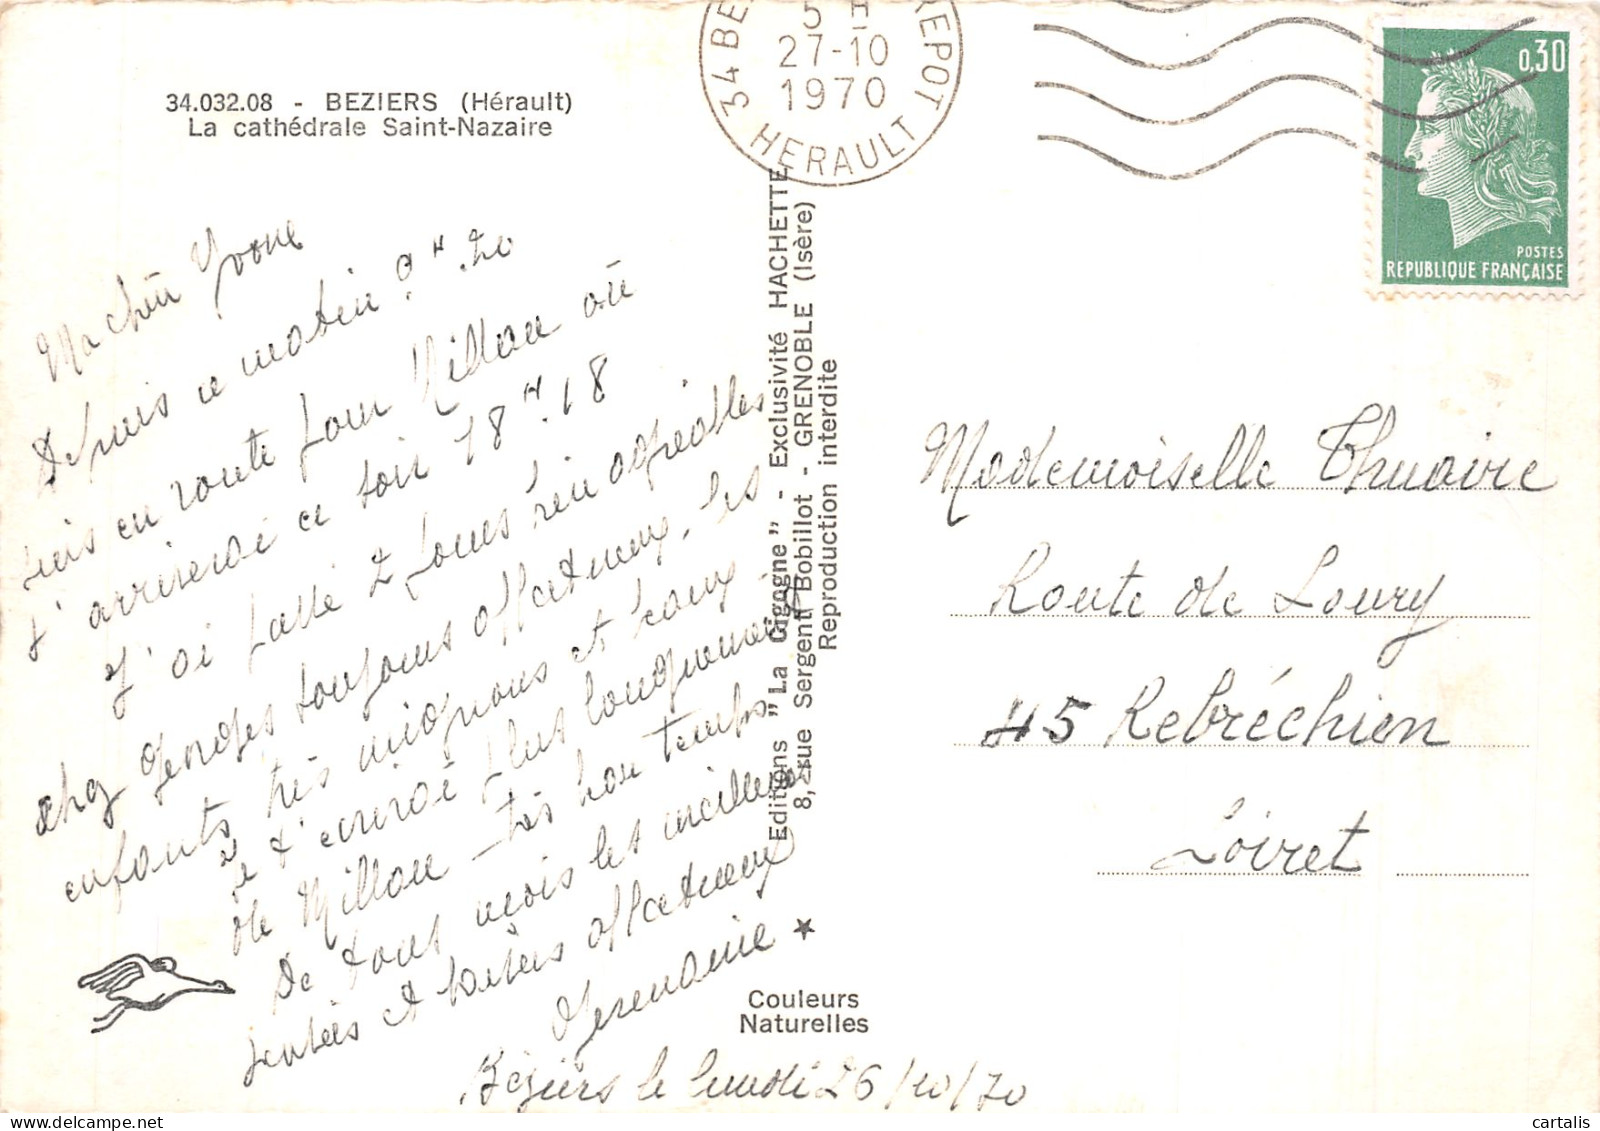 34.032.08 - BEZIERS (Hérault)
La cathédrale Saint-Nazaire
34 BE
REPOT
5 H
27-10
1970
HERAULT
0,30
POSTES
REPUBLIQUE FRANÇAISE
Ma chère Yvone
Depuis ce matin 9 H.20
suis en route pour Millau où
j'arriverai ce soir 18 H.18
J'ai passé 2 jours bien agréables
chez Georges toujours affectueux, les
enfants très mignons et
je t'
de Millau - très beau temps
De tous reçois les meilleures
et baisers affectueux
Germaine
Béziers le lundi 26/10/70
Editions "La Cigogne" - Exclusivité HACHETTE
8, rue Sergent Bobillot - GRENOBLE (Isère)
Reproduction interdite
Couleurs
Naturelles
Mademoiselle Thuaire
Route de Loury
45 Rebréchien
Loiret
cartalis